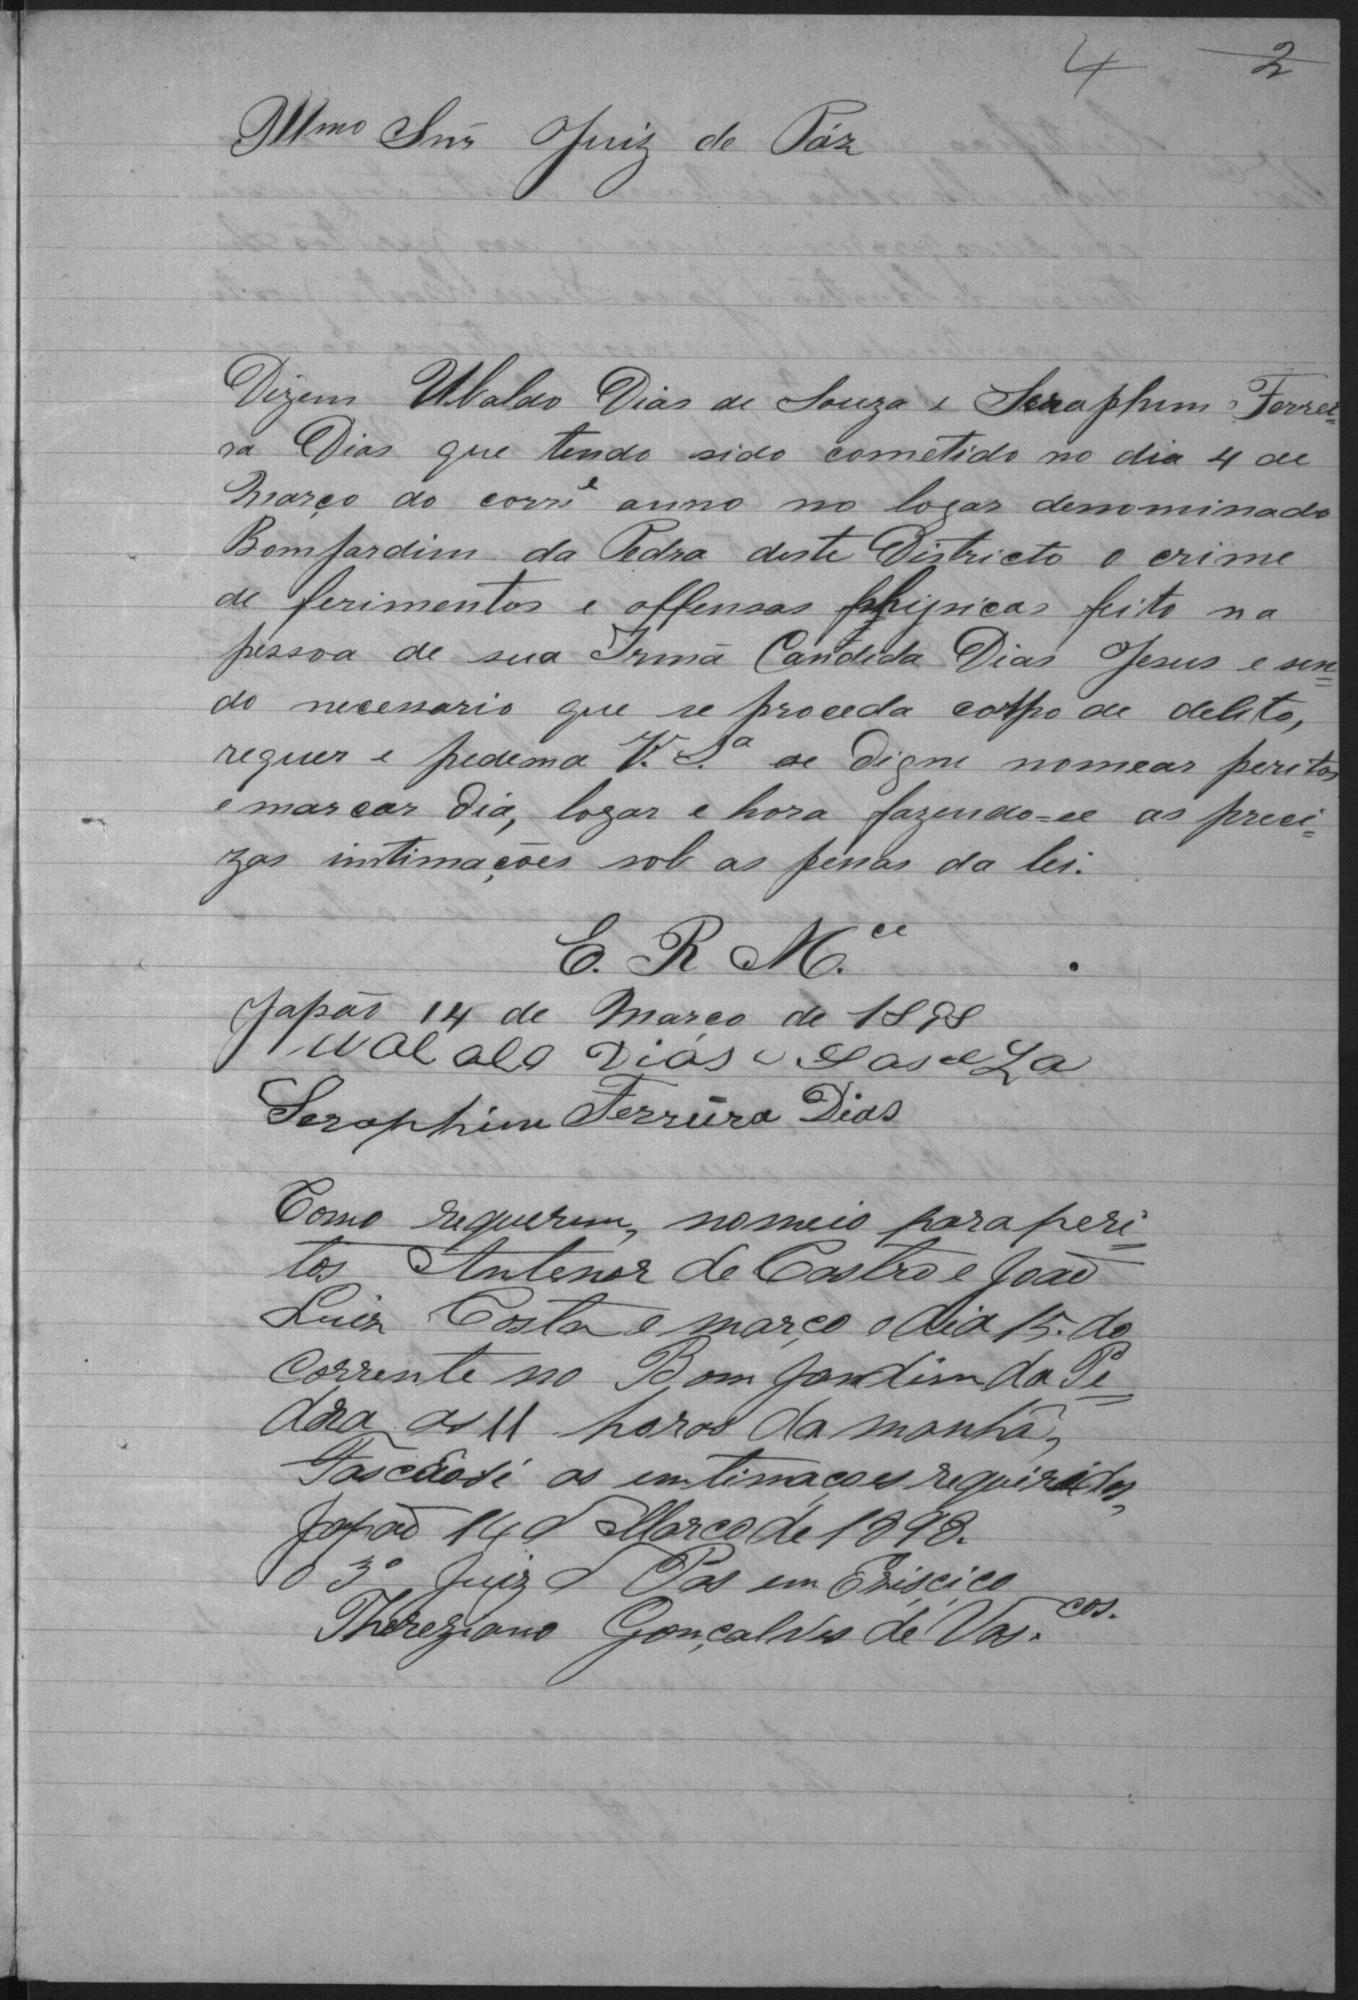 4 2
Illmo Snr Juiz de Páz
Dizem Ubaldo Dias de Souza e Seraphim Ferrei=
ra Dias que tendo sido cometido no dia 4 de
Março do corre anno no logar denominado
Bomjardim da Pedra deste Districto o crime
de ferimentos e offensas phipicas feito na
pessoa de sua Irmã Candida Dias Jesus e sen=
do necessario que se proceda corpo de delito,
requer e pedem a V. S.a se digne nomear peritos
e marcar dia, logar e hora fazendo=se as preci=
zas intimações sob as penas da lei.
E. R M.ce
Japão 14 de Março de 1898
Ubaldo Dias de Souza
Seraphim Ferreira Dias
Como requerem, nomeio para peri=
tos Antenor de Castro e João
Luiz Costa e março o dia 15. do
corrente no Bom jardim da Pe=
dra as 11 horas da manhã,
as emtimaçoes requiridas,
Japão 14 d Março de 1898.
O 3º Juiz d Pas em Eziscico
Thereziano Gonçalves de Vas.cos.